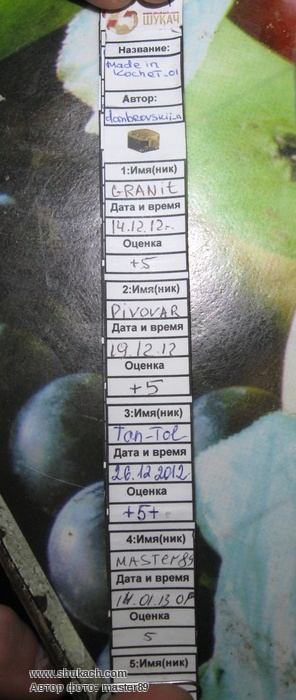 www.shukach.com
ШУКАЧ
Название:
Made in
Kochet_01
Автор:
dombrovskij_a
1:Имя(ник)
GRANit
Дата и время
14.12.12г.
Оценка
+5
2:Имя(ник)
PIVOVAR
Дата и время
19.12.12
Оценка
+5
3:Имя(ник)
Tan-Tol
Дата и время
26.12.2012
Оценка
+5+
4:Имя(ник)
MASTER89
Дата и время
14.01.13
Оценка
5
5:Имя(ник)
www.shukach.com
Автор фото: master69